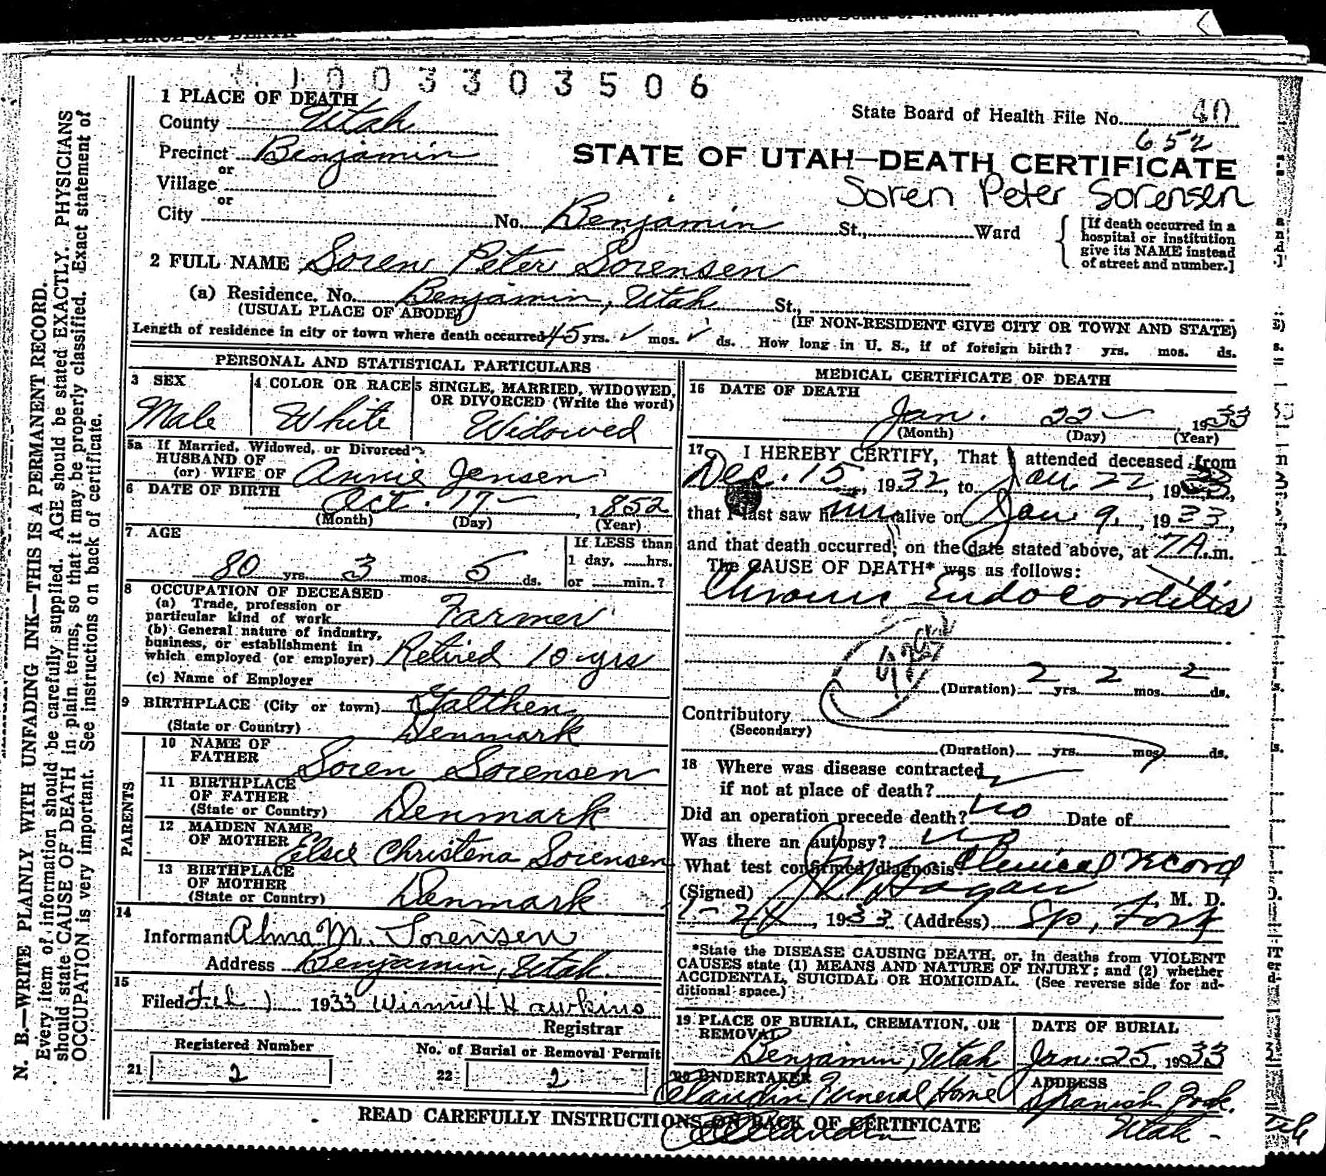 1003303506
1 PLACE OF DEATH
State Board of Health File No. 40
County Utah
652
Precinct Benjamin
STATE OF UTAH—DEATH CERTIFICATE
or
Village
Soren Peter Sorensen
or
City No. Benjamin St., Ward
[If death occurred in a
hospital or institution
give its NAME instead
of street and number.]
2 FULL NAME Soren Peter Sorensen
(a) Residence. No. Benjamin, Utah St.,
(USUAL PLACE OF ABODE)
(IF NON-RESIDENT GIVE CITY OR TOWN AND STATE)
Length of residence in city or town where death occurred 45 yrs. mos. ds. How long in U. S., if of foreign birth? yrs. mos. ds.
PERSONAL AND STATISTICAL PARTICULARS
3 SEX
Male
4 COLOR OR RACE
White
5 SINGLE, MARRIED, WIDOWED,
OR DIVORCED (Write the word)
Widowed
5a If Married, Widowed, or Divorced
HUSBAND OF
(or) WIFE OF Annie Jensen
6 DATE OF BIRTH
Oct. 17 1852
(Month) (Day) (Year)
7 AGE
80 yrs. 3 mos. 5 ds.
If LESS than
1 day, hrs.
or min.?
8 OCCUPATION OF DECEASED
(a) Trade, profession or
particular kind of work Farmer
(b) General nature of industry,
business, or establishment in
which employed (or employer) Retired 10 yrs
(c) Name of Employer
9 BIRTHPLACE (City or town) Galthen
(State or Country) Denmark
PARENTS
10 NAME OF
FATHER Soren Sorensen
11 BIRTHPLACE
OF FATHER
(State or Country) Denmark
12 MAIDEN NAME
OF MOTHER Elsie Christena Sorensen
13 BIRTHPLACE
OF MOTHER
(State or Country) Denmark
14
Informant Alma M. Sorensen
Address Benjamin, Utah
15
Filed Feb 1 1933 Winnie H Hawkins
Registrar
Registered Number
21 2
No. of Burial or Removal Permit
22 2
MEDICAL CERTIFICATE OF DEATH
16 DATE OF DEATH
Jan. 22 1933
(Month) (Day) (Year)
17 I HEREBY CERTIFY, That I attended deceased from
Dec. 15, 1932, to Jan. 22, 1933,
that I last saw him alive on Jan 9, 1933,
and that death occurred, on the date stated above, at 7A m.
The CAUSE OF DEATH* was as follows:
Chronic Endocorditis
(Duration) 2 yrs. 2 mos. 2 ds.
Contributory
(Secondary)
(Duration) yrs. mos. ds.
18 Where was disease contracted
if not at place of death?
Did an operation precede death? no Date of
Was there an autopsy? no
What test confirmed diagnosis? Clinical record
(Signed) Hagan, M. D.
1-24, 1933 (Address) Sp, Fork
*State the DISEASE CAUSING DEATH, or, in deaths from VIOLENT
CAUSES state (1) MEANS AND NATURE OF INJURY; and (2) whether
ACCIDENTAL, SUICIDAL OR HOMICIDAL. (See reverse side for ad-
ditional space.)
19 PLACE OF BURIAL, CREMATION, OR
REMOVAL
Benjamin, Utah
DATE OF BURIAL
Jan. 25, 1933
20 UNDERTAKER
Claudin Funeral Home
ADDRESS
Spanish Fork.
Utah
READ CAREFULLY INSTRUCTIONS ON BACK OF CERTIFICATE
N. B.—WRITE PLAINLY WITH UNFADING INK—THIS IS A PERMANENT RECORD.
Every item of information should be carefully supplied. AGE should be stated EXACTLY. PHYSICIANS
should state CAUSE OF DEATH in plain terms, so that it may be properly classified. Exact statement of
OCCUPATION is very important. See instructions on back of certificate.